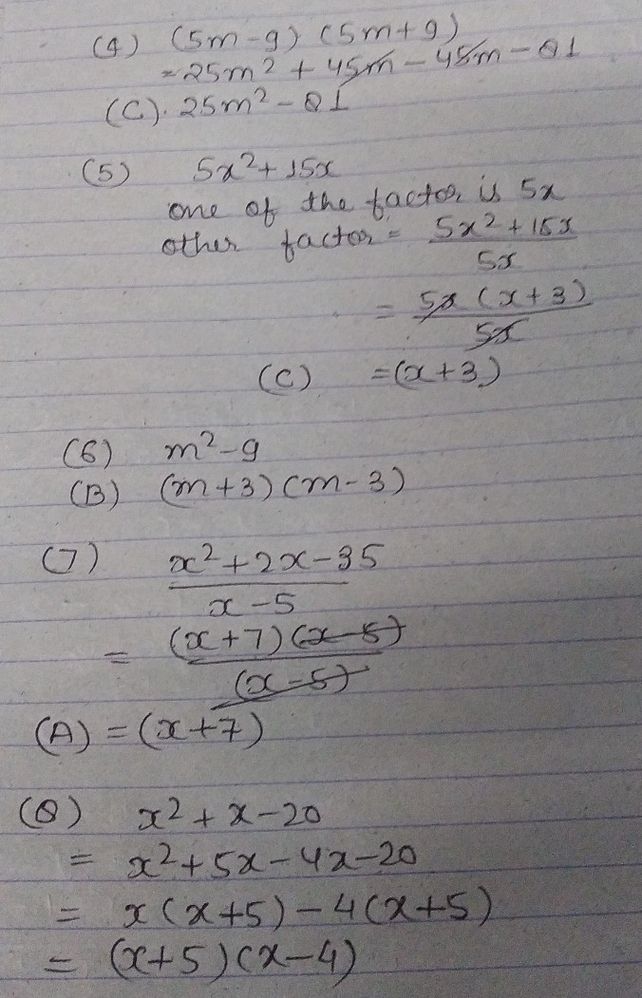 (4) (5m-9) (5m+9)
= 25m² + 45m - 45m - 81
(C). 25m² - 81
(5) 5x² + 15x
one of the factor is 5x
other factor = (5x² + 15x)/(5x)
= (5x (x+3))/(5x)
(C) = (x+3)
(6) m² - 9
(B) (m+3) (m-3)
(7) (x² + 2x - 35)/(x - 5)
= ((x+7) (x-5))/((x-5))
(A) = (x+7)
(8) x² + x - 20
= x² + 5x - 4x - 20
= x (x+5) - 4 (x+5)
= (x+5) (x-4)